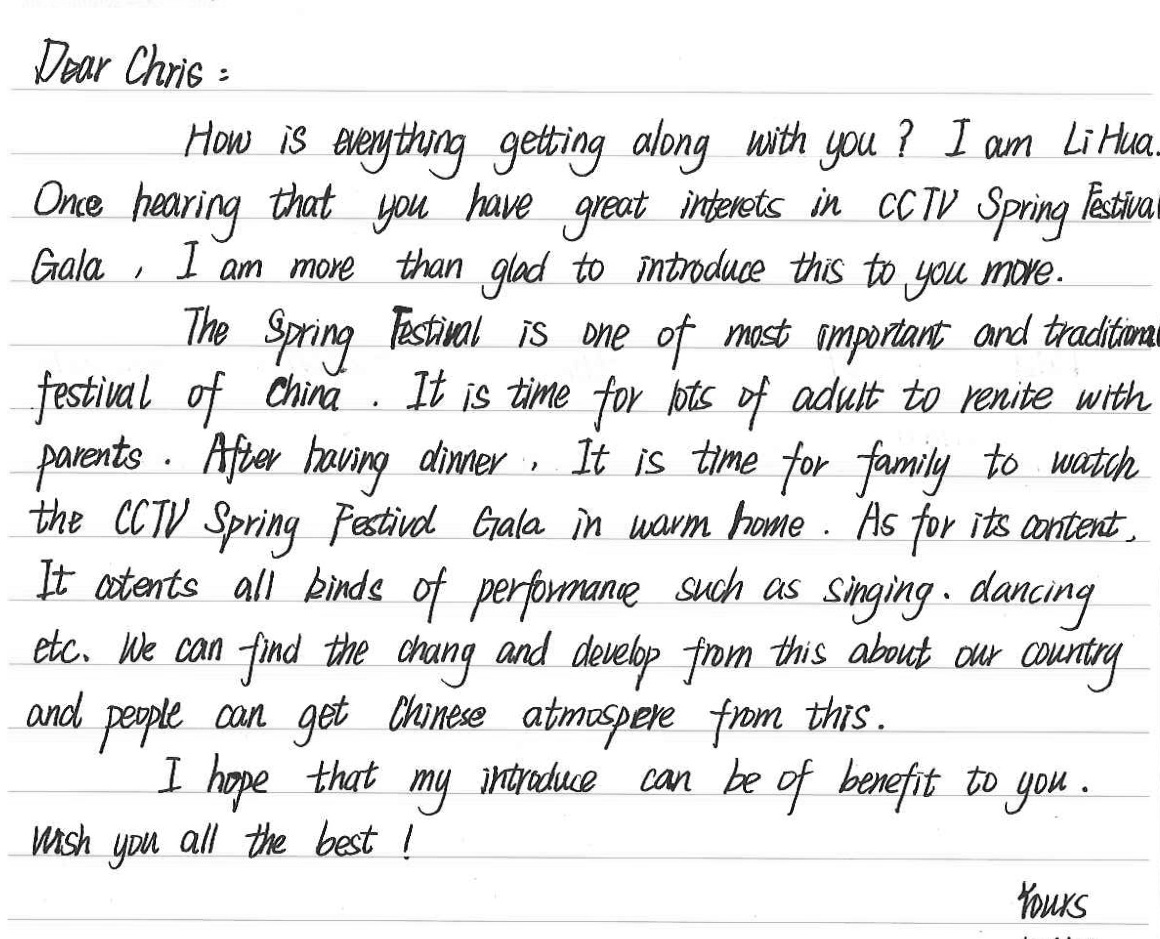 Dear Chris:
How is everything getting along with you? I am Li Hua.
Once hearing that you have great interets in CCTV Spring Festival
Gala, I am more than glad to introduce this to you more.
The Spring Festival is one of most important and traditional
festival of China. It is time for lots of adult to renite with
parents. After having dinner, It is time for family to watch
the CCTV Spring Festival Gala in warm home. As for its content,
It cotents all kinds of performance such as singing. dancing
etc. We can find the chang and develop from this about our country
and people can get Chinese atmospere from this.
I hope that my introduce can be of benefit to you.
Wish you all the best!
Yours